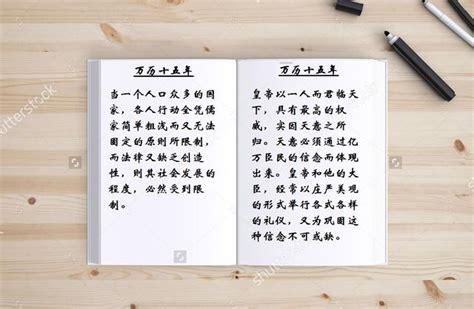 万历十五年
当一个人口众多的国
家，各人行动全凭儒
家简单粗浅而又无法
固定的原则所限制，
而法律又缺乏创造
性，则其社会发展的
程度，必然受到限
制。
万历十五年
皇帝以一人而君临天
下，具有最高的权
威，实因天意之所
归。天意必须通过亿
万臣民的信念而体现
出来。皇帝和他的大
臣，经常以庄严美观
的形式举行各式各样
的礼仪，又为巩固这
种信念不可或缺。
shutterstock